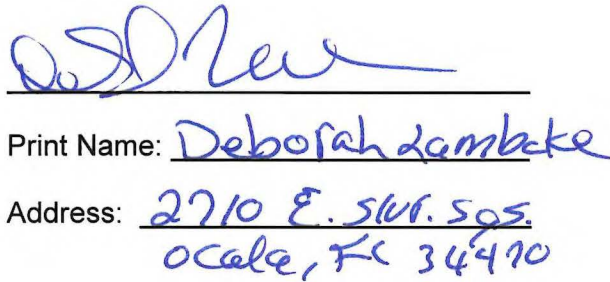 Print Name: Deborah Lambcke
Address: 2710 E. Slvr. Sgs.
Ocala, FL 34470